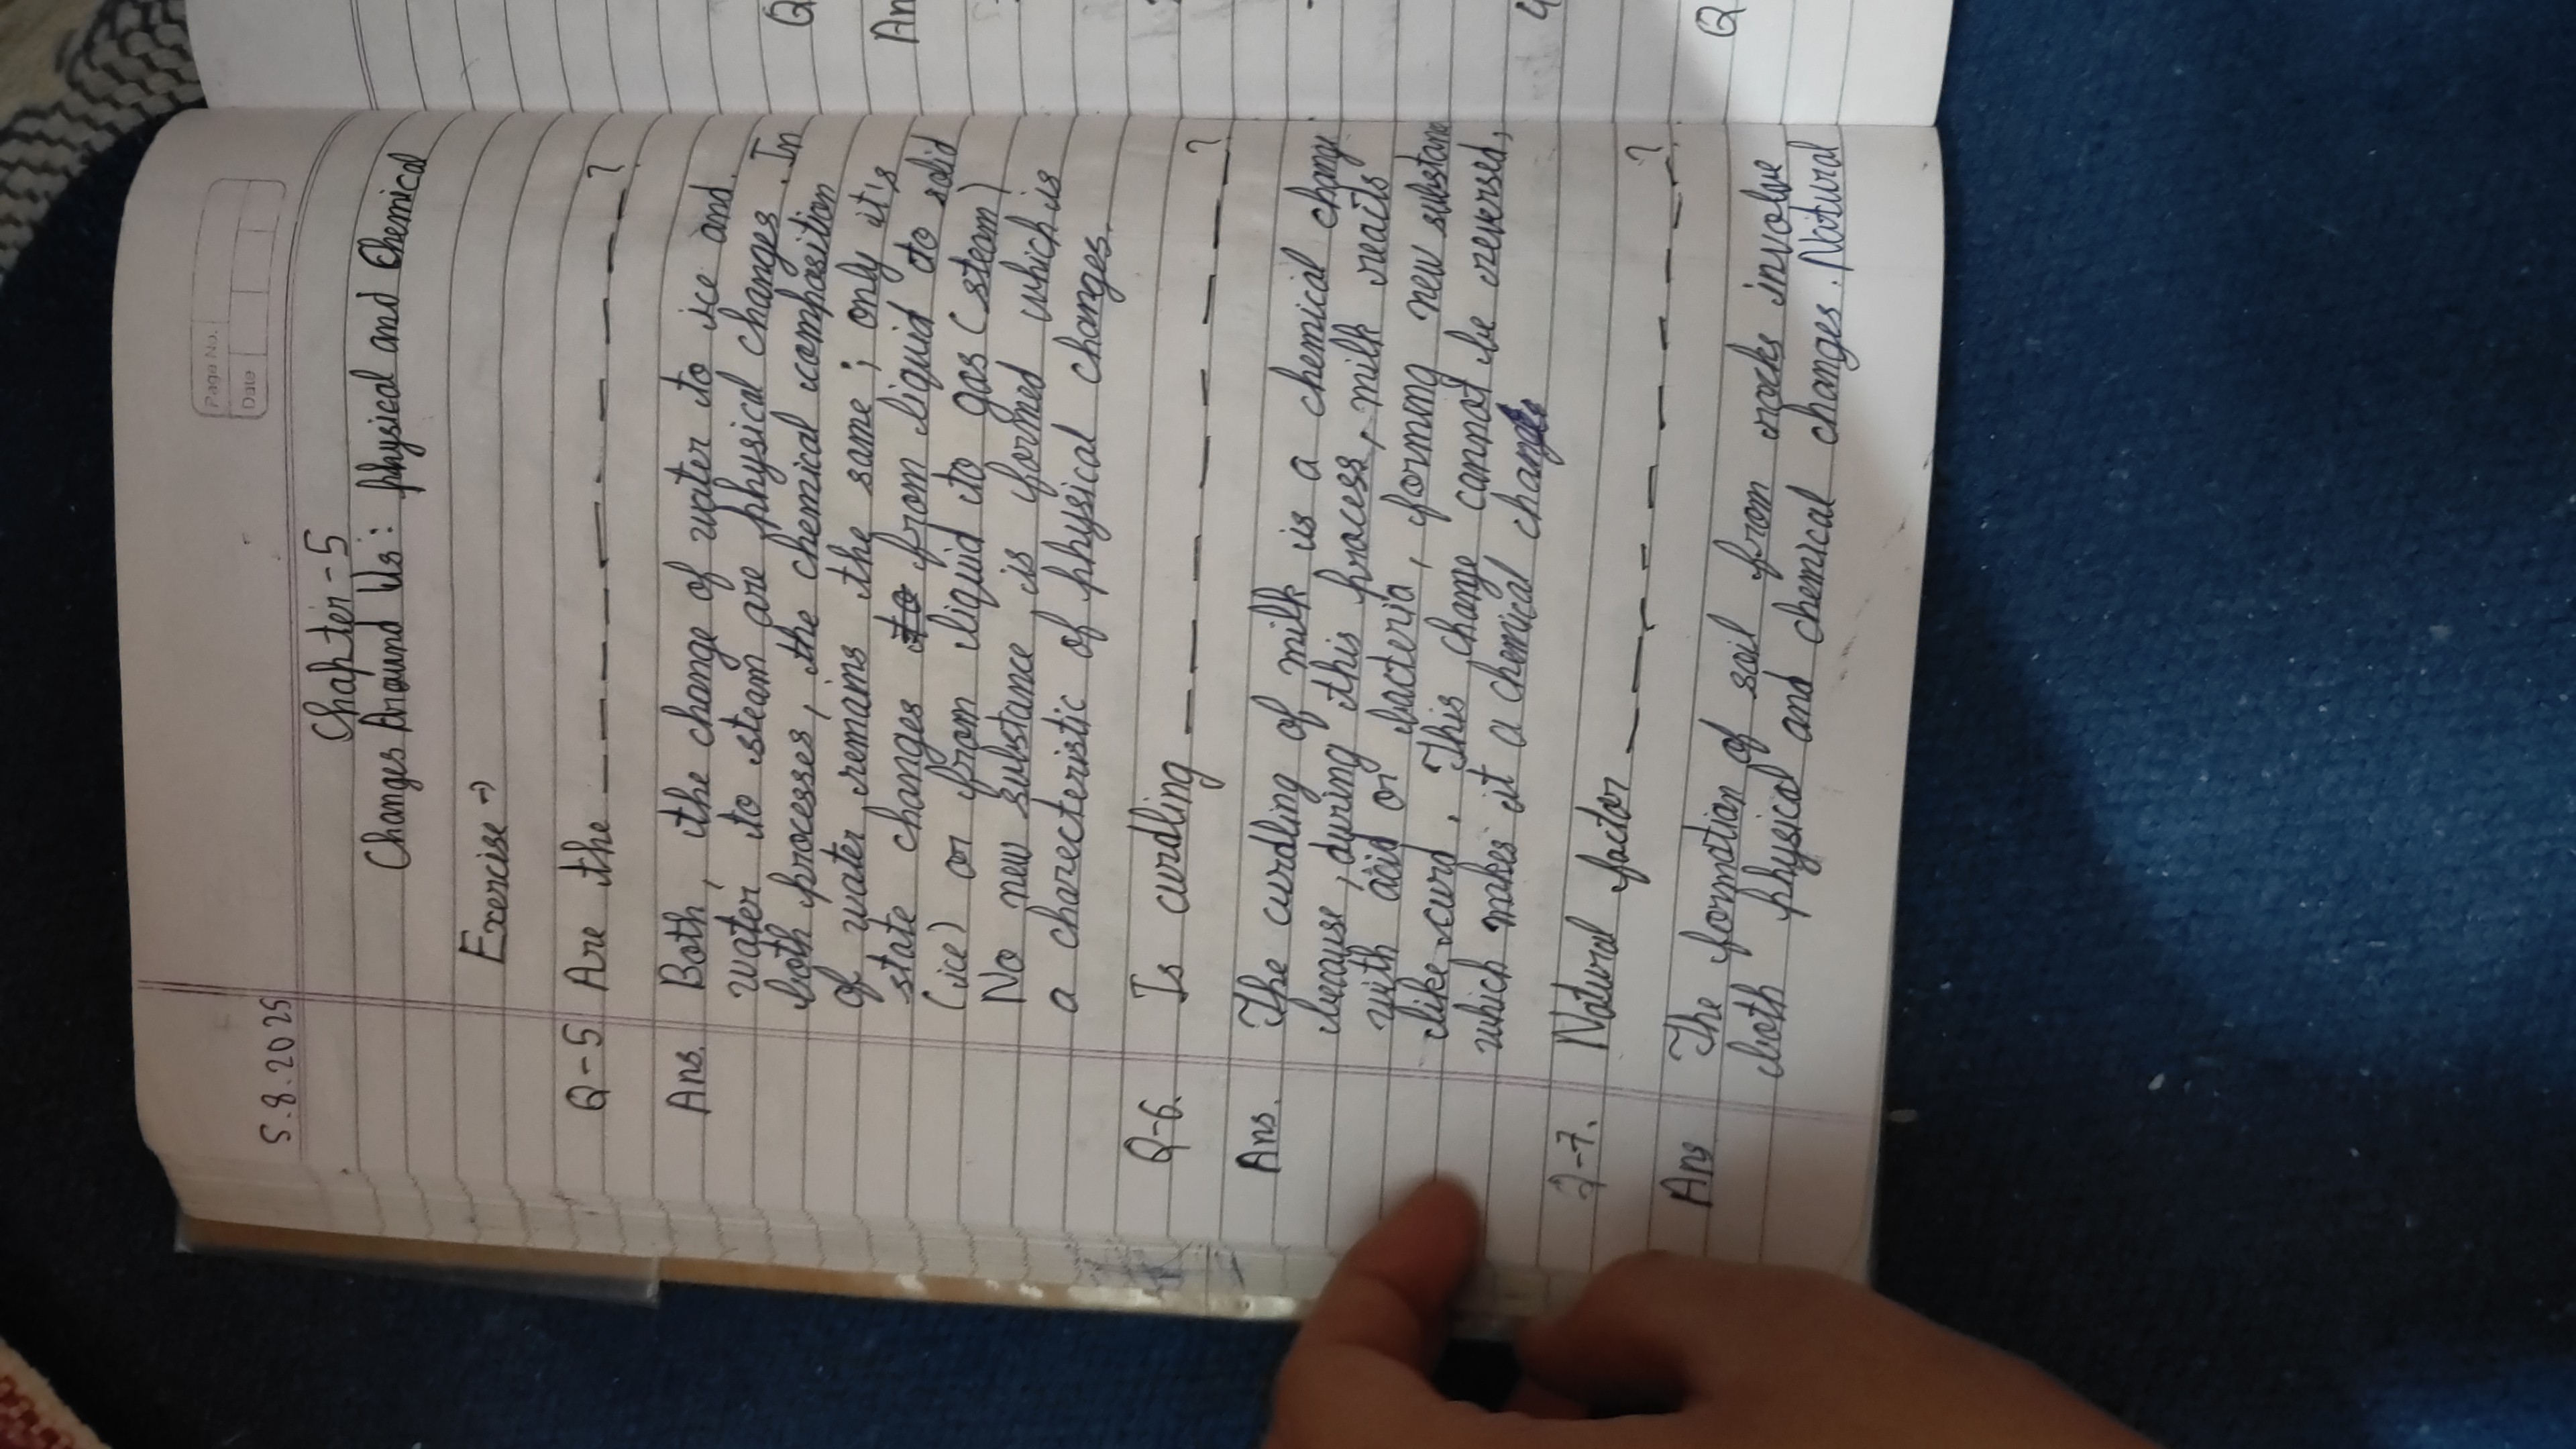 Page No.
Date
5.8.2025
Chapter-5
Changes Around Us: physical and Chemical
Exercise →
Q-5 Are the — — — — — — — — — — ?
Ans. Both, the change of water to ice and
water to steam are physical changes. In
both processes, the chemical composition
of water remains the same; only it's
state changes to from liquid to solid
(ice) or from liquid to gas (steam)
No new substance is formed which is
a charecteristic of physical changes.
Q-6. Is curdling — — — — — — — — ?
Ans. The curdling of milk is a chemical change
because, during this process, milk reacts
with acid or bacteria, forming new substane
like curd. This change cannot be reversed,
which makes it a chemical change
Q-7. Natural factor — — — — — — — — ?
Ans The formation of soil from rocks involve
both physical and chemical changes. Natural
Q
An
4
Q